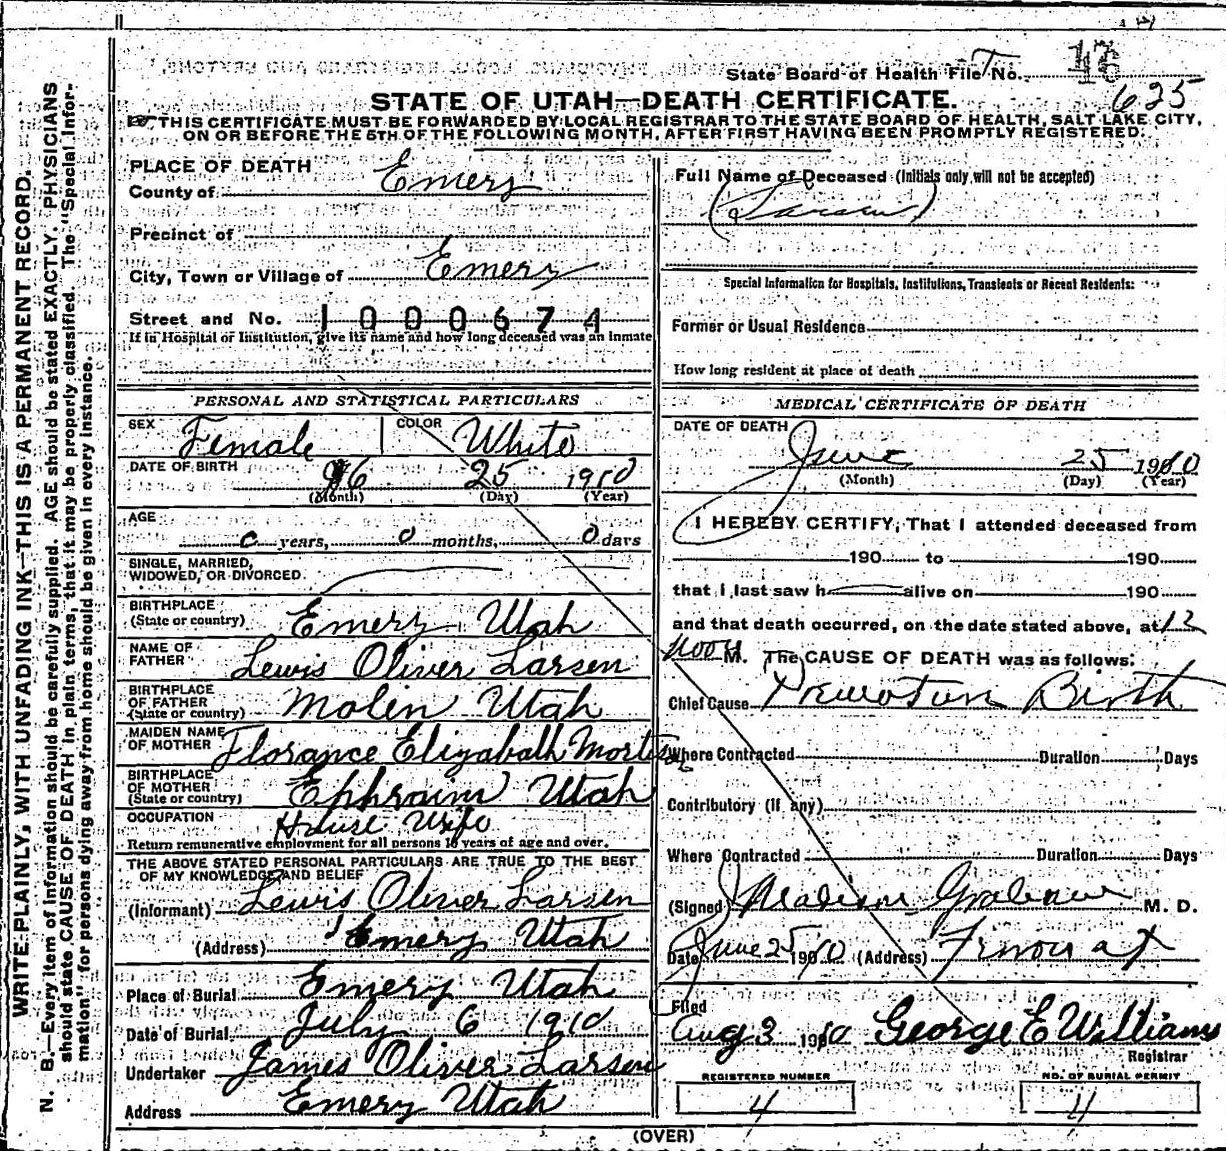 State Board of Health File No.
625
STATE OF UTAH—DEATH CERTIFICATE.
THIS CERTIFICATE MUST BE FORWARDED BY LOCAL REGISTRAR TO THE STATE BOARD OF HEALTH, SALT LAKE CITY,
ON OR BEFORE THE 5TH OF THE FOLLOWING MONTH, AFTER FIRST HAVING BEEN PROMPTLY REGISTERED.
WRITE PLAINLY, WITH UNFADING INK—THIS IS A PERMANENT RECORD.
N. B.—Every item of information should be carefully supplied. AGE should be stated EXACTLY. PHYSICIANS
should state CAUSE OF DEATH in plain terms, that it may be properly classified. The "Special Infor-
mation" for persons dying away from home should be given in every instance.
PLACE OF DEATH
County of Emery
Precinct of
City, Town or Village of Emery
Street and No. 1000674
If in Hospital or Institution, give its name and how long deceased was an inmate
PERSONAL AND STATISTICAL PARTICULARS
SEX Female COLOR White
DATE OF BIRTH 6 25 1910
(Month) (Day) (Year)
AGE
0 years, 0 months, 0 days
SINGLE, MARRIED,
WIDOWED, OR DIVORCED.
BIRTHPLACE
(State or country) Emery Utah
NAME OF
FATHER Lewis Oliver Larsen
BIRTHPLACE
OF FATHER
(State or country) Molin Utah
MAIDEN NAME
OF MOTHER Florance Elizabath
BIRTHPLACE
OF MOTHER
(State or country) Ephraim Utah
OCCUPATION House Wife
Return remunerative employment for all persons 10 years of age and over.
THE ABOVE STATED PERSONAL PARTICULARS ARE TRUE TO THE BEST
OF MY KNOWLEDGE AND BELIEF
(Informant) Lewis Oliver Larsen
(Address) Emery Utah
Place of Burial Emery Utah
Date of Burial July 6 1910
Undertaker James Oliver Larsen
Address Emery Utah
Full Name of Deceased (Initials only will not be accepted)
(Larsen)
Special Information for Hospitals, Institutions, Transients or Recent Residents:
Former or Usual Residence
How long resident at place of death
MEDICAL CERTIFICATE OF DEATH
DATE OF DEATH
June 25 1910
(Month) (Day) (Year)
I HEREBY CERTIFY, That I attended deceased from
190 to 190
that I last saw h alive on 190
and that death occurred, on the date stated above, at 12
noon M. The CAUSE OF DEATH was as follows:
Chief Cause Premoturn Birth
Where Contracted Duration Days
Contributory (if any)
Where Contracted Duration Days
(Signed) M. D.
Date June 25 1910 (Address)
Filed
Aug 3 1910 George E Williams
Registrar
REGISTERED NUMBER
4
NO. OF BURIAL PERMIT
4
(OVER)